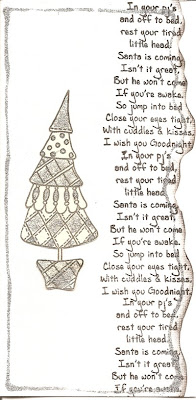 In your pj's
and off to bed,
rest your tired
little head.
Santa is coming,
Isn't it great.
But he won't come
If you're awake.
So jump into bed
Close your eyes tight.
With cuddles & kisses,
I wish you Goodnight.
In your pj's
and off to bed,
rest your tired
little head.
Santa is coming,
Isn't it great.
But he won't come
If you're awake.
So jump into bed
Close your eyes tight.
With cuddles & kisses
I wish you Goodnight.
In your pj's
and off to bed,
rest your tired
little head.
Santa is coming,
Isn't it great.
But he won't come
If you're awake.